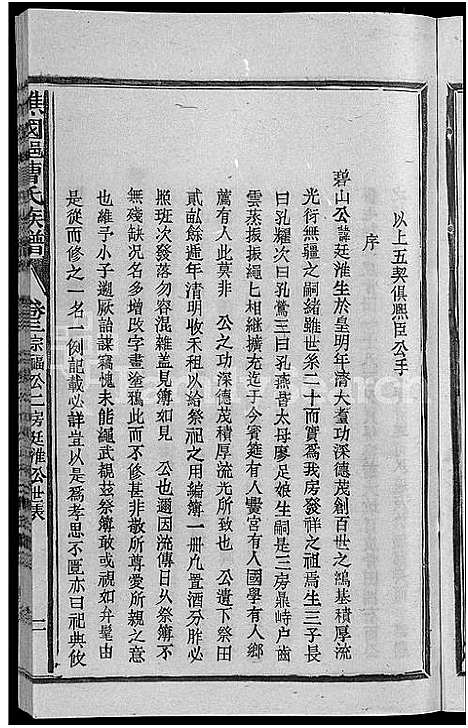 以上五契俱熙臣公手
序
碧山公諱廷淮生於皇明年濟大耋功深德茂創百世之鴻基積厚流
光衍無疆之嗣緒雖世系二十而實爲我房發祥之祖焉生三子長
曰孔耀次曰孔鶯三曰孔燕皆太母廖足娘生嗣是三房鼎峙户齒
雲蒸振振繩七相繼擴充迄于今賓筵有人黌宮有人國學有人鄉
薦有人此莫非 公之功深德茂積厚流光所致也 公遺下祭田
貳畝餘遞年清明收禾租以給祭祀之用編簿一册凡置酒分胙必
照班次發落勿容混雜盖見簿如見 公也邇因流傳日久祭簿不
無殘缺况名多增改字畫塗鴉此而不修甚非敬所尊愛所親之意
也維予小子遡厥詒謀竊愧未能繩武覩兹祭簿敢或視如弁髦由
是從而修之一名一例記載必詳豈以是爲孝思不匱亦曰祀典攸
譙國邑曹氏族譜
卷三宗福公二房廷淮公世表
二